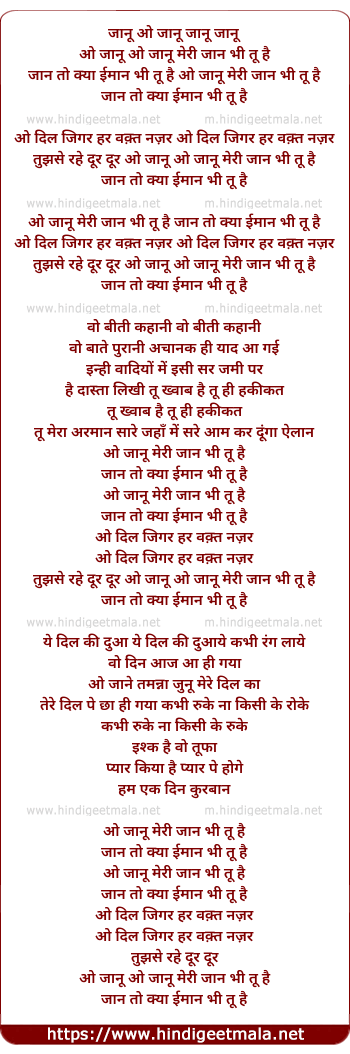 जानू ओ जानू जानू जानू
ओ जानू ओ जानू मेरी जान भी तू है
जान तो क्या ईमान भी तू है ओ जानू मेरी जान भी तू है
जान तो क्या ईमान भी तू है
www.hindigeetmala.net m.hindigeetmala.net
ओ दिल जिगर हर वक़्त नज़र ओ दिल जिगर हर वक़्त नज़र
तुझसे रहे दूर दूर ओ जानू ओ जानू मेरी जान भी तू है
जान तो क्या ईमान भी तू है
www.hindigeetmala.net m.hindigeetmala.net
ओ जानू मेरी जान भी तू है जान तो क्या ईमान भी तू है
ओ दिल जिगर हर वक़्त नज़र ओ दिल जिगर हर वक़्त नज़र
तुझसे रहे दूर दूर ओ जानू ओ जानू मेरी जान भी तू है
जान तो क्या ईमान भी तू है
www.hindigeetmala.net m.hindigeetmala.net
वो बीती कहानी वो बीती कहानी
वो बाते पुरानी अचानक ही याद आ गई
इन्ही वादियों में इसी सर जमी पर
है दास्ता लिखी तू ख्वाब है तू ही हकीकत
तू ख्वाब है तू ही हकीकत
तू मेरा अरमान सारे जहाँ में सरे आम कर दूंगा ऐलान
ओ जानू मेरी जान भी तू है
जान तो क्या ईमान भी तू है
ओ जानू मेरी जान भी तू है
जान तो क्या ईमान भी तू है
ओ दिल जिगर हर वक़्त नज़र
ओ दिल जिगर हर वक़्त नज़र
तुझसे रहे दूर दूर ओ जानू ओ जानू मेरी जान भी तू है
जान तो क्या ईमान भी तू है
www.hindigeetmala.net m.hindigeetmala.net
ये दिल की दुआ ये दिल की दुआये कभी रंग लाये
वो दिन आज आ ही गया
ओ जाने तमन्ना जुनू मेरे दिल का
तेरे दिल पे छा ही गया कभी रुके ना किसी के रोके
कभी रुके ना किसी के रुके
इश्क है वो तूफा
प्यार किया है प्यार पे होगे
हम एक दिन कुरबान
www.hindigeetmala.net m.hindigeetmala.net
ओ जानू मेरी जान भी तू है
जान तो क्या ईमान भी तू है
ओ जानू मेरी जान भी तू है
जान तो क्या ईमान भी तू है
ओ दिल जिगर हर वक़्त नज़र
ओ दिल जिगर हर वक़्त नज़र
तुझसे रहे दूर दूर
ओ जानू ओ जानू मेरी जान भी तू है
जान तो क्या ईमान भी तू है
https://www.hindigeetmala.net